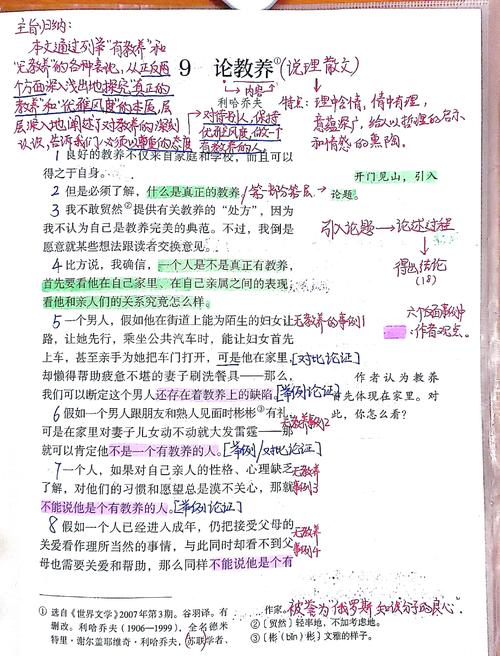 主旨归纳:
本文通过列举"有教养"和
"无教养"的各种表现,从正反两
个方面深入浅出地探究"真正的
教养"和"优雅风度"的本质,层
层深入地阐述了对教养的深刻
认识,告诉我们必须以尊重的态度
对待别人,保持
优雅风度,做一个
有教养的人。
9 论教养①(说理散文)
内容
利哈乔夫
特点:理中含情,情中有理,
意蕴深广,给人以哲理的启示
和情感的熏陶。
1 良好的教养不仅来自家庭和学校,而且可以
得之于自身。
2 但是必须了解,什么是真正的教养
开门见山,引入
论题。
3 我不敢贸然②提供有关教养的“处方”,因为
我不认为自己是教养完美的典范。不过,我倒是
愿意就某些想法跟读者交换意见。
引入论题→论述过程
得出结论
(18)
4 比方说,我确信,一个人是不是真正有教养,
首先要看他在自己家里、在自己亲属之间的表现,
看他和亲人们的关系究竟怎么样。
六个反面事例中
作者观点。
5 一个男人,假如他在街道上能为陌生的妇女让
无教养的事例1
路,让她先行,乘坐公共汽车时,能让妇女首先
上车,甚至亲手为她把车门打开,可是他在家里,
[对比论证]
却懒得帮助疲惫不堪的妻子刷洗餐具——那么,
我们可以断定这个男人还存在着教养上的缺陷。
[举例论证]
作者认为教养
首先体现在家里。对
此,你怎么看?
6 假如一个男人跟朋友和熟人见面时彬彬③有礼,
无教养事例2
可是在家里对妻子儿女动不动就大发雷霆——那
就可以肯定他不是一个有教养的人。
[举例/对比论证]
7 一个人,如果对自己亲人的性格、心理缺乏
了解,对他们的习惯和愿望总是漠不关心,那就
无教养
事例3
不能说他是个有教养的人。
[举例论证]
8 假如一个人已经进入成年,仍把接受父母的
关爱看作理所当然的事情,与此同时却看不到父
母也需要关爱和帮助,那么同样不能说他是个有
无教养
事例4
① 选自《世界文学》2007年第3期。谷羽译。有
删改。利哈乔夫(1906—1999),全名德米
特里·谢尔盖耶维奇·利哈乔夫,苏联学者、
作家。被誉为"俄罗斯知识分子的良心"
②〔贸然〕轻率地,不加考虑地。
③〔彬(bīn)彬〕文雅的样子。